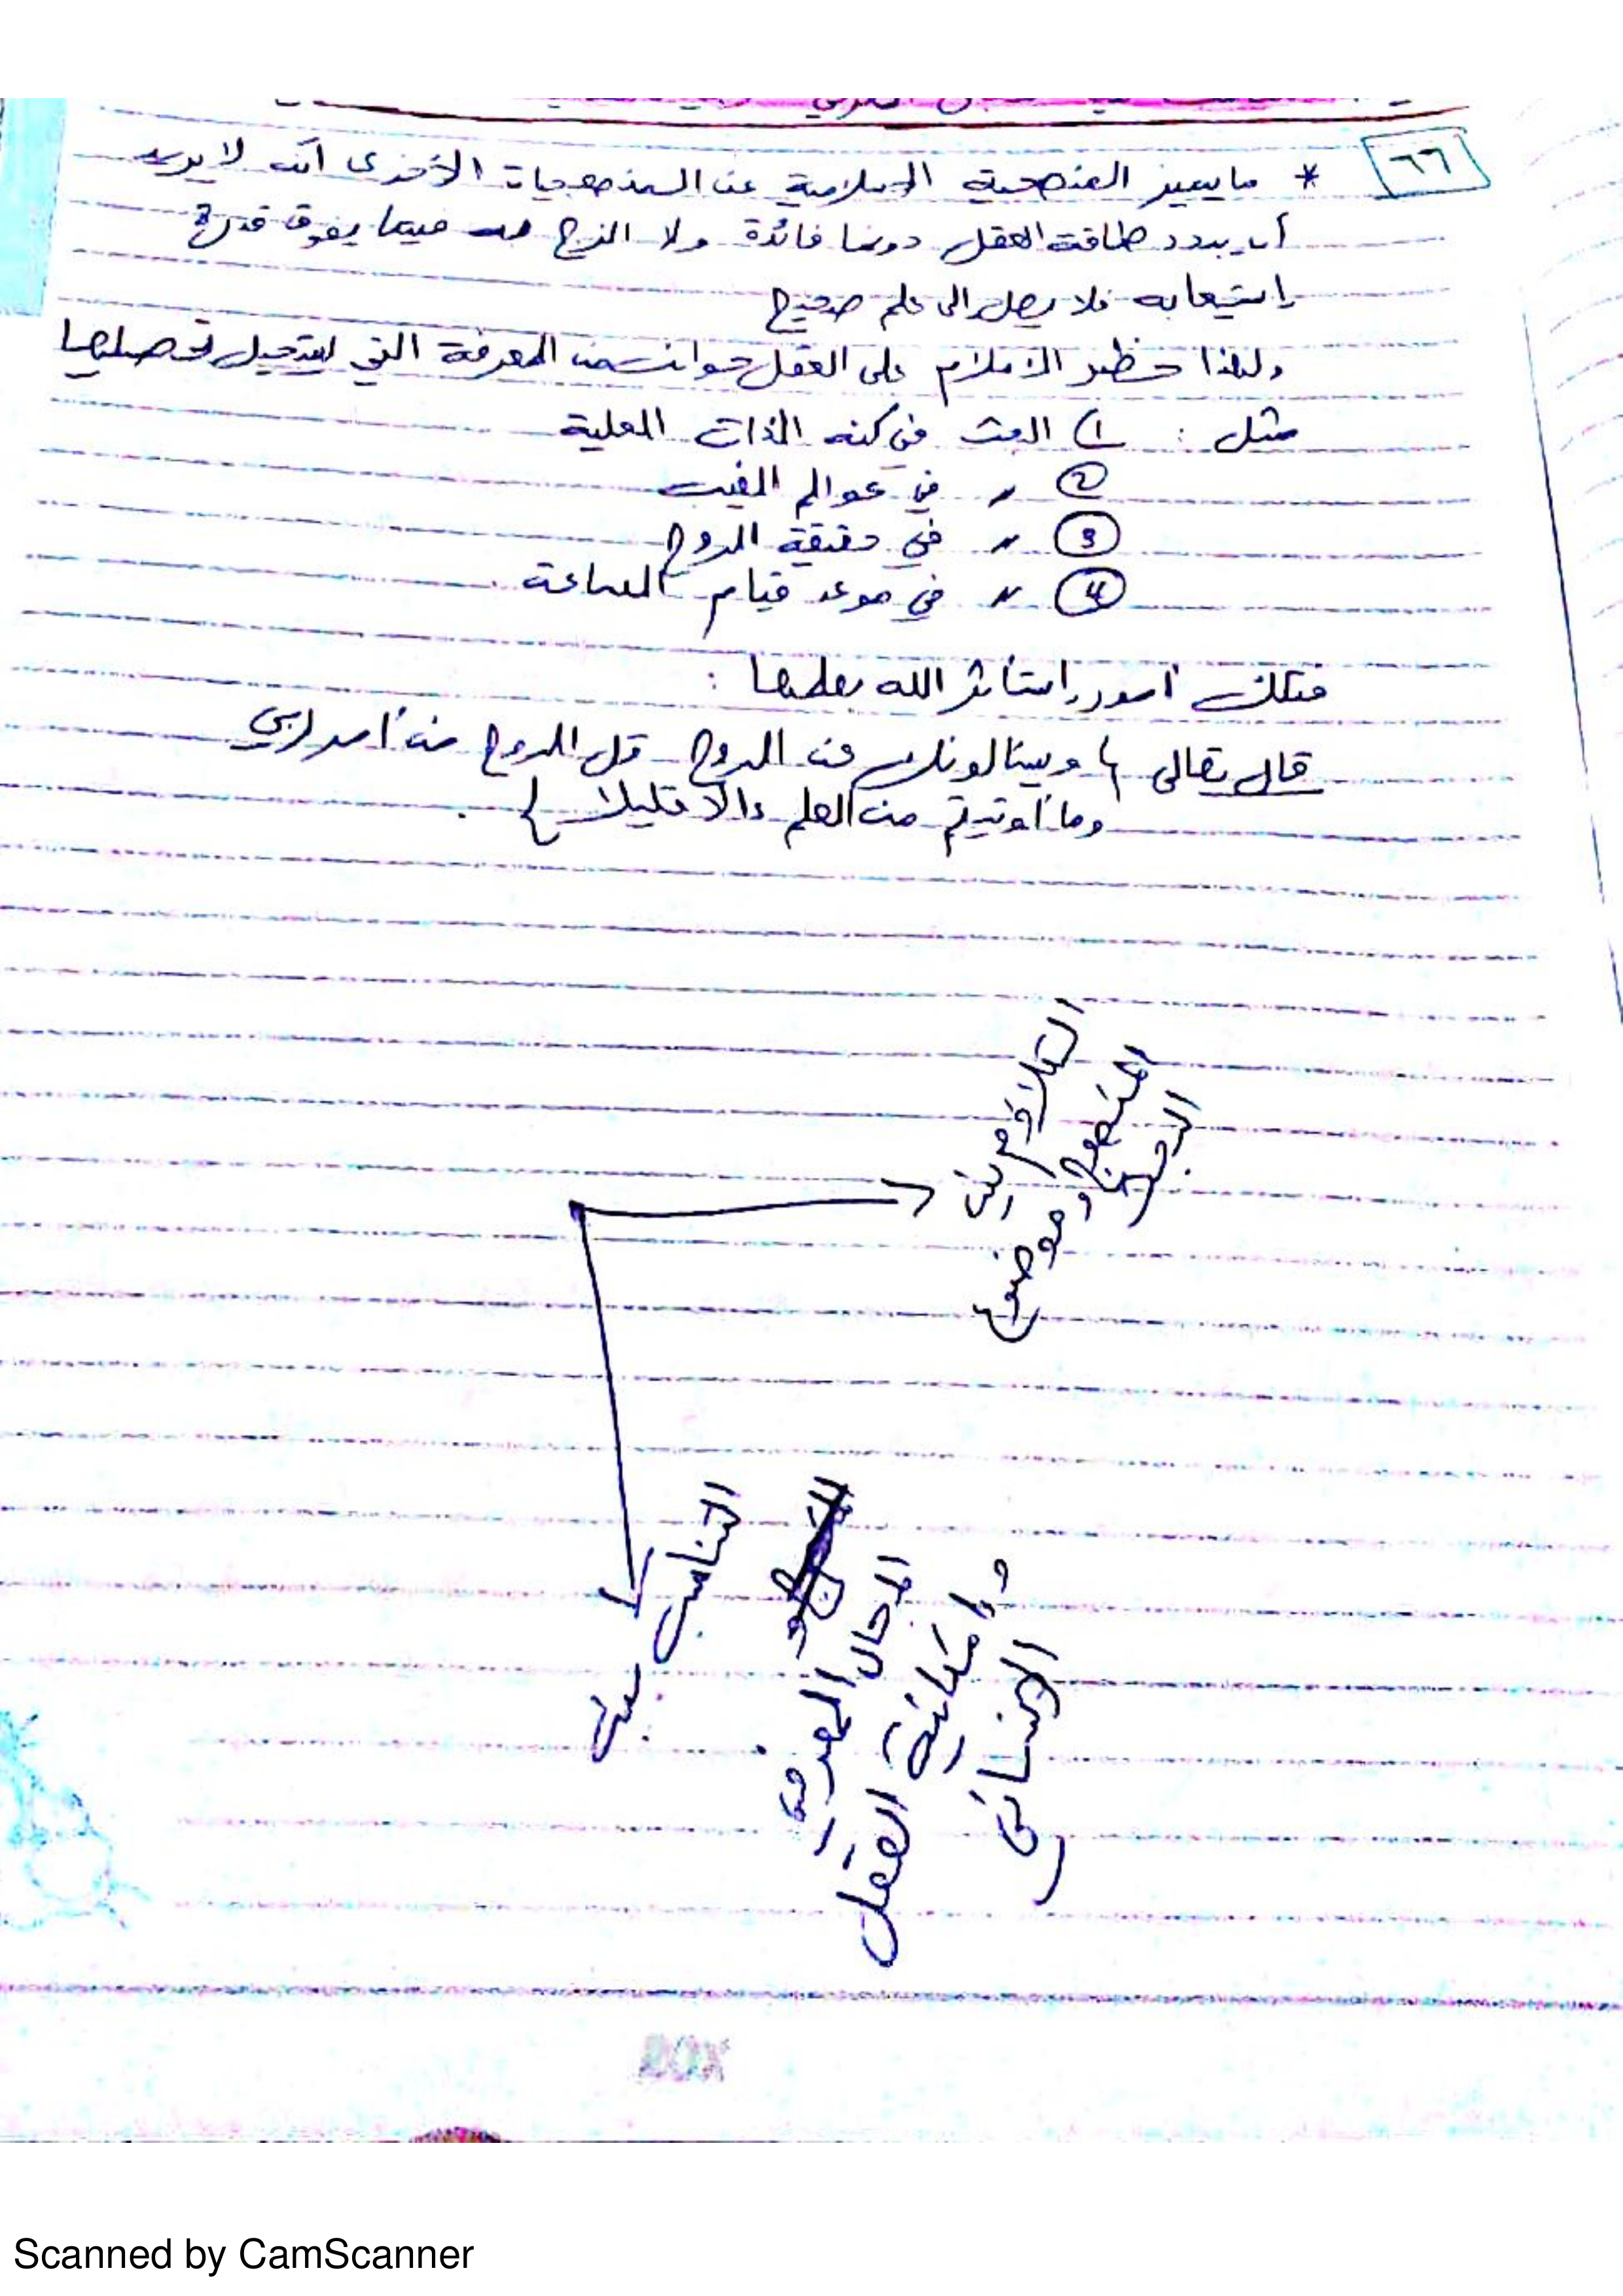 ٦٦
* ما يميز المنهجية الإسلامية عن المنهجيات الأخرى أنه لا يريد
أن يبدد طاقة العقل دونما فائدة ولا الزج به فيما يفوق قدرة
استيعابه فلا يصل إلى علم صحيح
ولهذا حظر الإسلام على العقل جوانب من المعرفة التي يستحيل تحصيلها
مثل : ١) البحث في كنه الذات العلية
② 〃 في عوالم الغيب
③ 〃 في حقيقة الروح
④ 〃 في موعد قيام الساعة
فتلك أمور استأثر الله بعلمها :
قال تعالى { ويسألونك عن الروح قل الروح من أمر ربي
وما أوتيتم من العلم إلا قليلا } .
التلازم بين
المنهج وموضوع
البحث
التناسب بين
المجال المعرفي
وإمكانية العقل
الإنساني
BOX
Scanned by CamScanner